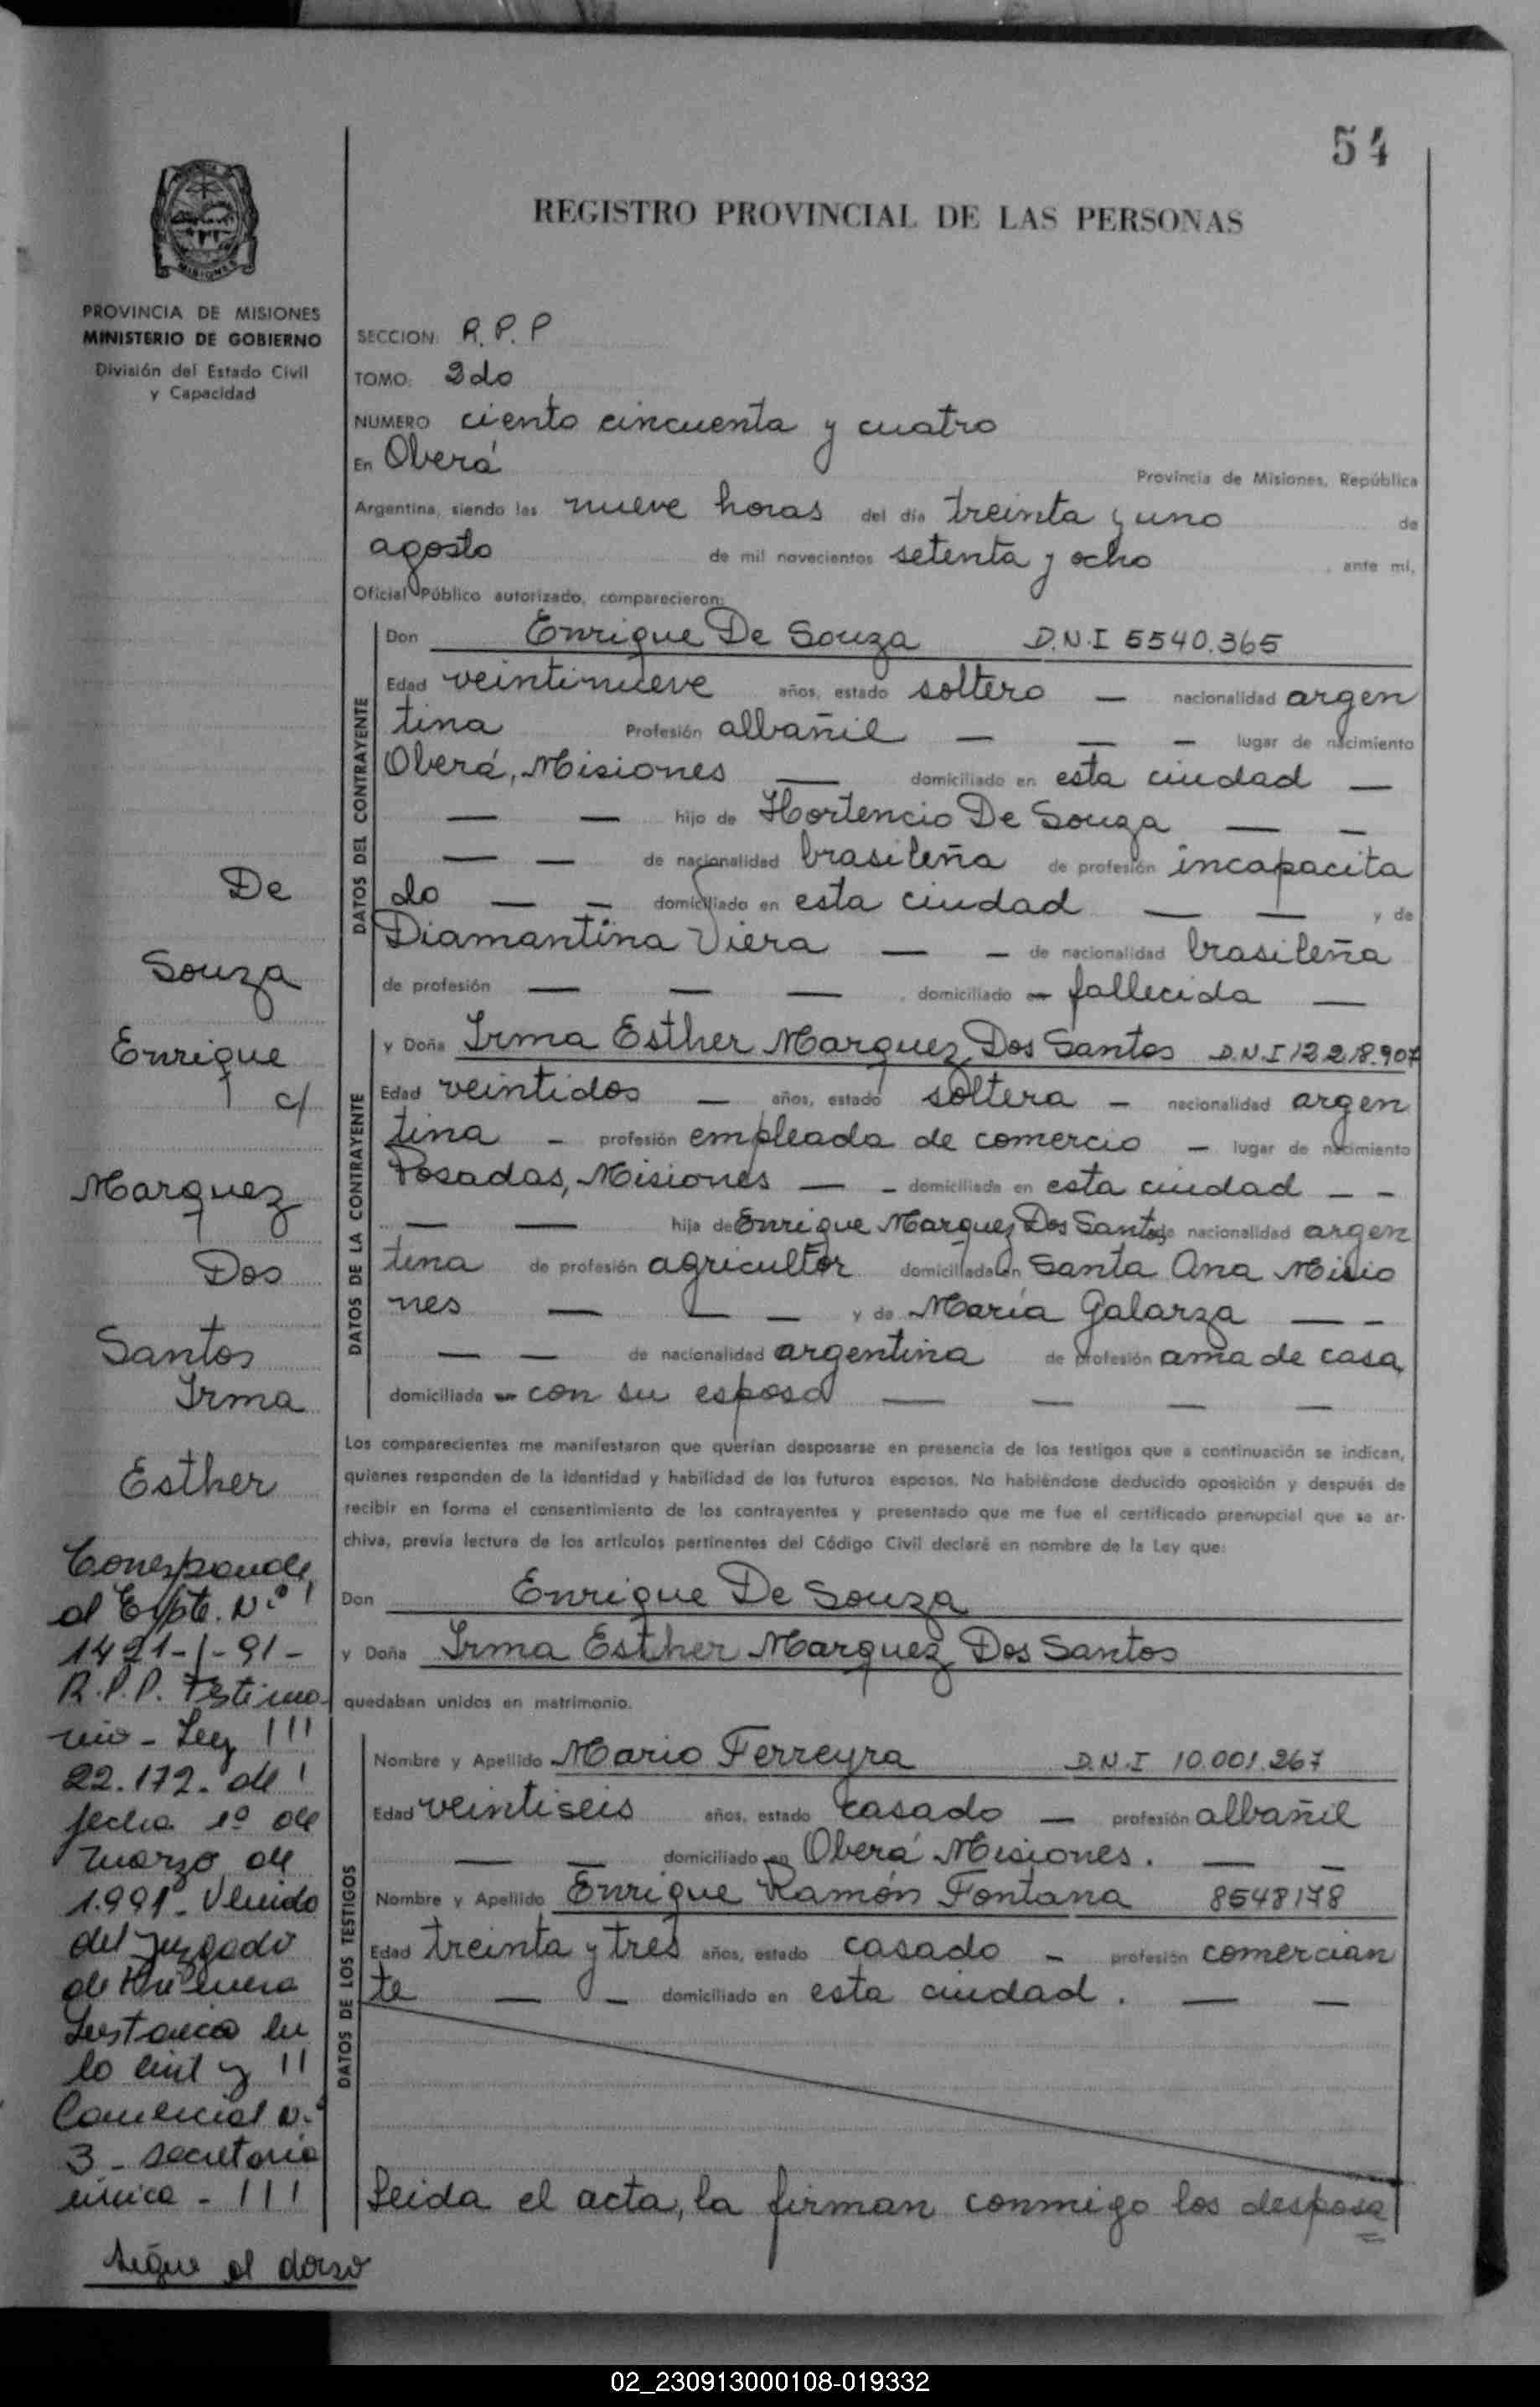 54
REGISTRO PROVINCIAL DE LAS PERSONAS
MISIONES
PROVINCIA DE MISIONES
MINISTERIO DE GOBIERNO
División del Estado Civil
y Capacidad
SECCION: R. P. P
TOMO: 2do
NUMERO ciento cincuenta y cuatro
En Oberá
Provincia de Misiones, República
Argentina, siendo las nueve horas del día treinta y uno de
agosto de mil novecientos setenta y ocho, ante mí,
Oficial Público autorizado, comparecieron:
DATOS DEL CONTRAYENTE
Don Enrique De Souza D.N.I 5540.365
Edad veintinueve años, estado soltero — nacionalidad argen
tina Profesión albañil — — — lugar de nacimiento
Oberá, Misiones — domiciliado en esta ciudad —
— — hijo de Hortencio De Souza — —
— — de nacionalidad brasileña de profesión incapacita
do — — domiciliado en esta ciudad — — y de
Diamantina Viera — — de nacionalidad brasileña
de profesión — — — , domiciliado en fallecida —
DATOS DE LA CONTRAYENTE
y Doña Irma Esther Marquez Dos Santos D.N.I 12.218.907
Edad veintidos — años, estado soltera — nacionalidad argen
tina — profesión empleada de comercio — lugar de nacimiento
Posadas, Misiones — — domiciliada en esta ciudad — —
— — hija de Enrique Marquez Dos Santos de nacionalidad argen
tina de profesión agricultor domiciliada en Santa Ana Misio
nes — — — y de María Galarza — —
— — de nacionalidad argentina de profesión ama de casa
domiciliada en con su esposo — — — —
Los comparecientes me manifestaron que querían desposarse en presencia de los testigos que a continuación se indican,
quienes responden de la identidad y habilidad de los futuros esposos. No habiéndose deducido oposición y después de
recibir en forma el consentimiento de los contrayentes y presentado que me fue el certificado prenupcial que se ar-
chiva, previa lectura de los artículos pertinentes del Código Civil declaré en nombre de la Ley que:
Don Enrique De Souza
y Doña Irma Esther Marquez Dos Santos
quedaban unidos en matrimonio.
DATOS DE LOS TESTIGOS
Nombre y Apellido Mario Ferreyra D.N.I 10.001.267
Edad veintiseis años, estado casado — profesión albañil
— — domiciliado en Oberá Misiones. — —
Nombre y Apellido Enrique Ramón Fontana 8548178
Edad treinta y tres años, estado casado — profesión comercian
te — — domiciliado en esta ciudad. — —
Leida el acta, la firman conmigo los desposa
De
Souza
Enrique
c/
Marquez
Dos
Santos
Irma
Esther
Corresponde
al Expte. Nº
1421-1-91-
R.P.P. Testimo
nio - Ley
22.172. de
fecha 1º de
marzo de
1.991. Venido
del Juzgado
de Primera
Instancia en
lo Civil y
Comercial N.º
3 - Secretaria
única -
Sigue al dorso
02_230913000108-019332